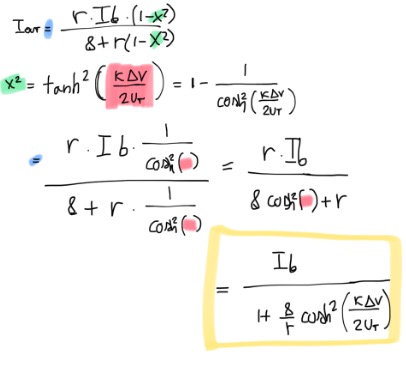 Iout = r·Ib·(1-x²) / 8+r(1-x²)
x² = tanh²(κΔV / 2U_T) = 1 - 1 / cosh²(κΔV / 2U_T)
= r·Ib·1/cosh²( ) / 8 + r·1/cosh²( ) = r·Ib / 8 cosh²( )+r
= Ib / 1+ 8/r cosh²(κΔV / 2U_T)